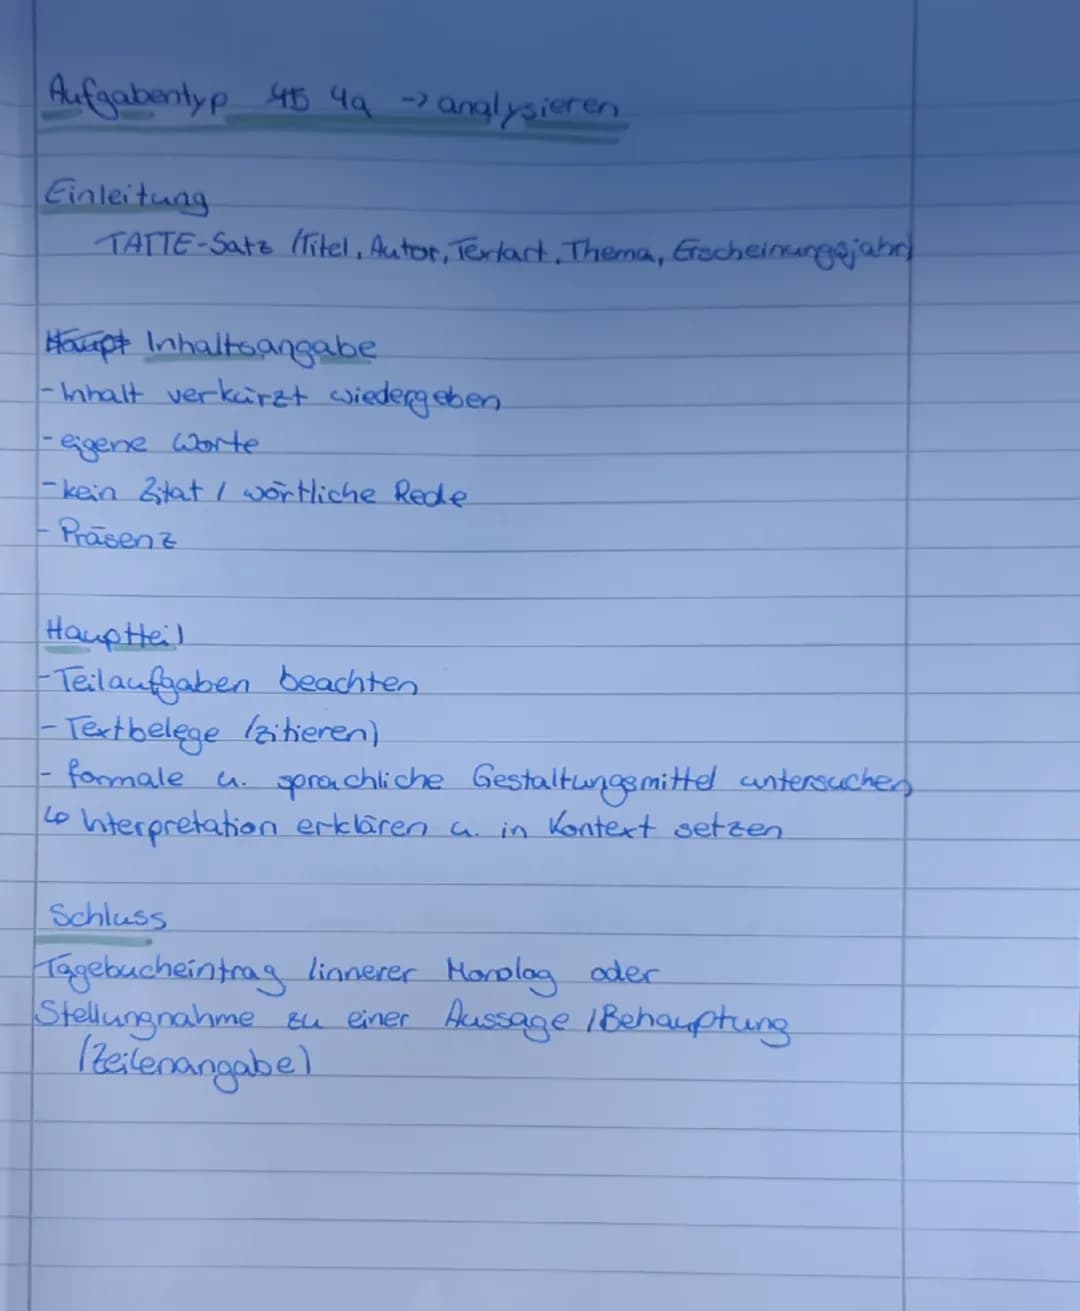 Aufgabentyp 4a -> analysieren
Einleitung
TATTE-Satz (Titel, Autor, Textart, Thema, Erscheinungsjahr)
Haupt Inhaltsangabe
- Inhalt verkürzt wiedergeben
- eigene Worte
- kein Zitat / wörtliche Rede
- Präsenz
Hauptteil
- Teilaufgaben beachten
- Textbelege (zitieren)
- formale u. sprachliche Gestaltungsmittel untersuchen
↳ Interpretation erklären u. in Kontext setzen
Schluss
Tagebucheintrag / innerer Monolog oder
Stellungnahme zu einer Aussage / Behauptung
(Zeilenangabe)